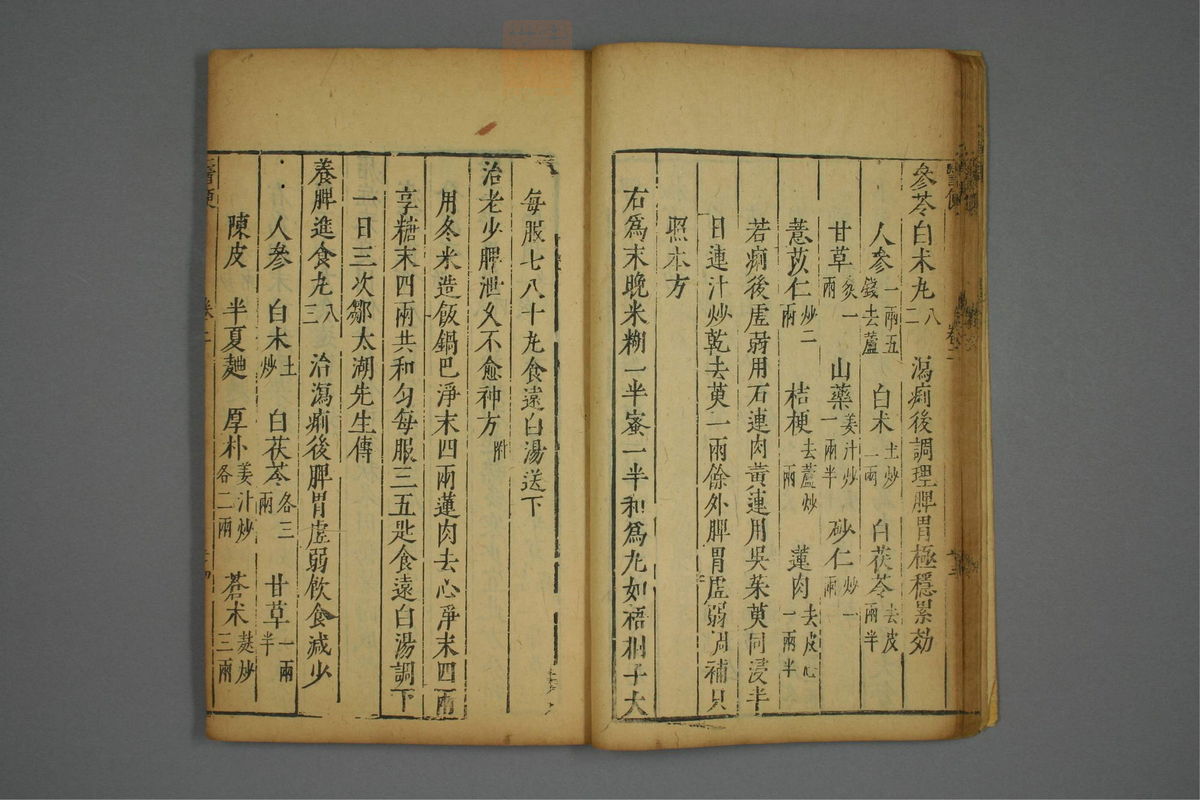 參苓白朮丸八二 瀉痢後調理脾胃極穩累効
人參一兩五錢去蘆 白朮土炒一兩 白茯苓去皮兩半
甘草炙一兩 山藥姜汁炒一兩半 砂仁炒一兩
薏苡仁炒二兩 桔梗去蘆炒兩 蓮肉去皮心一兩半
若痢後虛弱用石蓮肉黃連用吳茱萸同浸半
日連汁炒乾去萸一兩餘外脾胃虛弱調補只
照本方
右爲末晚米糊一半蜜一半和爲丸如梧桐子大
每服七八十丸食遠白湯送下
治老少脾泄久不愈神方附
用冬米造飯鍋巴淨末四兩蓮肉去心淨末四兩
享糖末四兩共和勻每服三五匙食遠白湯調下
一日三次鄒太湖先生傳
養脾進食丸八三 治瀉痢後脾胃虛弱飲食減少
人參 白朮土炒 白茯苓各三兩 甘草一兩半
陳皮 半夏麯 厚朴姜汁炒各二兩 蒼朮麸炒三兩
醫便 卷二